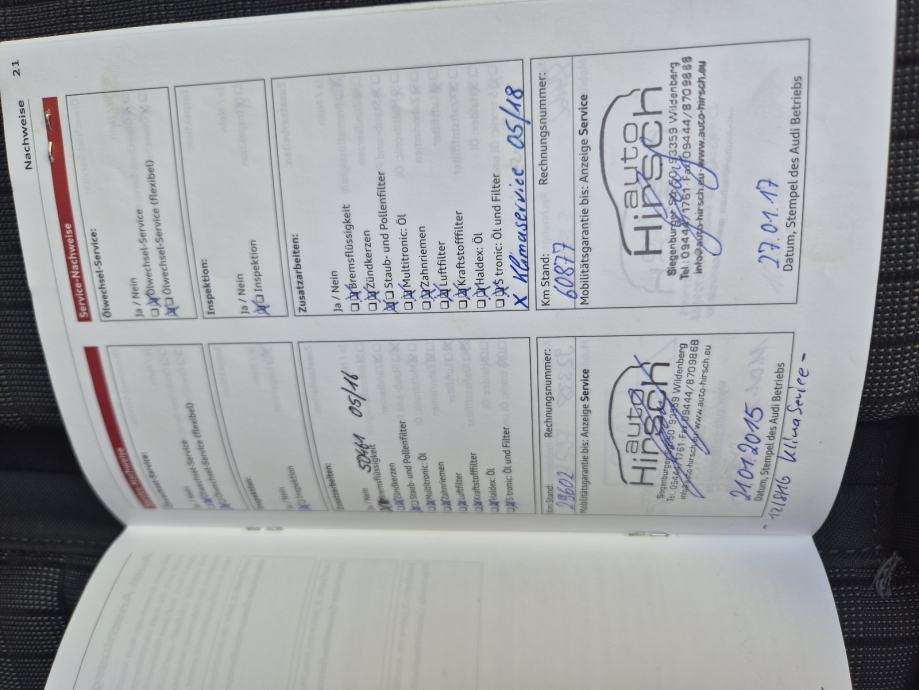 Nachweise 21
Service-Nachweise
Ölwechsel-Service:
Ja / Nein
Ölwechsel-Service
Ölwechsel-Service (flexibel)
Inspektion:
Ja / Nein
Inspektion
Zusatzarbeiten:
Ja / Nein
Bremsflüssigkeit
Zündkerzen
Staub- und Pollenfilter
Multitronic: Öl
Zahnriemen
Luftfilter
Kraftstofffilter
Haldex: Öl
S tronic: Öl und Filter
X Klimaservice 05/18
Km Stand: Rechnungsnummer:
60877
Mobilitätsgarantie bis: Anzeige Service
auto
Hirsch
Siegenburger Str. 93359 Wildenberg
Tel: 09444/1761 · Fax 09444/8709868
info@auto-hirsch.eu www.auto-hirsch.eu
27.01.17
Datum, Stempel des Audi Betriebs
Service:
Nein
Service
Service (flexibel)
Nein
Inspektion
Ja / Nein 50461 05/16
Bremsflüssigkeit
Zündkerzen
Staub- und Pollenfilter
Multitronic: Öl
Zahnriemen
Luftfilter
Kraftstofffilter
Haldex: Öl
S tronic: Öl und Filter
Km Stand: Rechnungsnummer:
29602
Mobilitätsgarantie bis: Anzeige Service
auto
Hirsch
Siegenburger 93359 Wildenberg
Fax 09444/8709868
www.auto-hirsch.eu
21.01.2015
Datum, Stempel des Audi Betriebs
- 12/8/16 Klima Service -